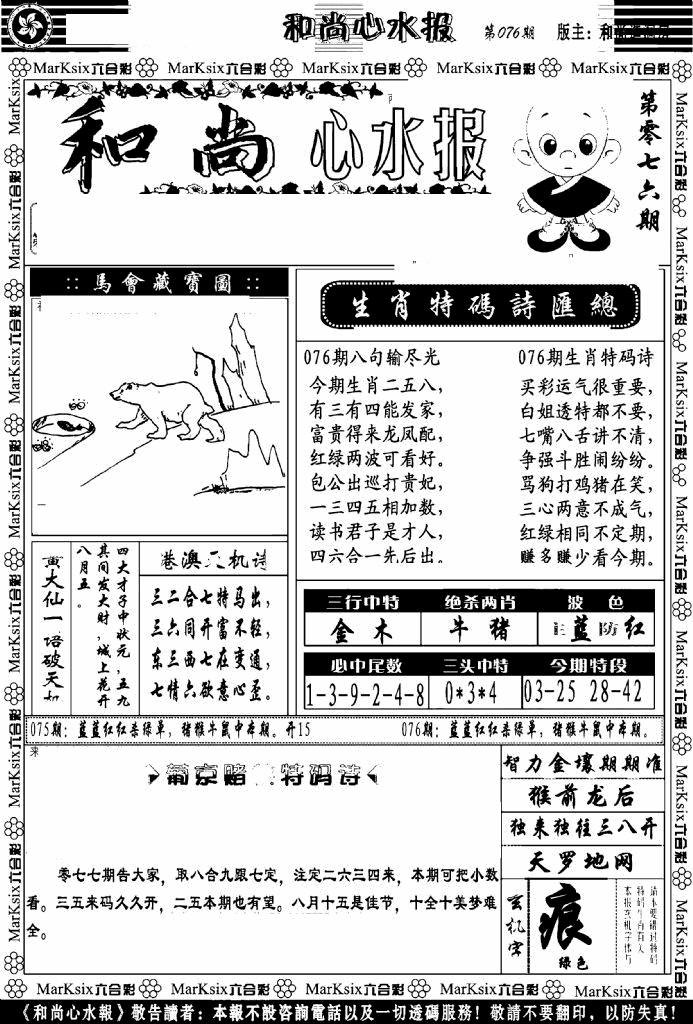 和尚心水报 第076期 版主：和
MarKsix六合彩 MarKsix六合彩 MarKsix六合彩 MarKsix六合彩 MarKsix六合彩
和尚心水报
第零七六期
::馬會藏寶圖::
生肖特碼詩匯總
076期八句输尽光
今期生肖二五八，
有三有四能发家，
富贵得来龙凤配，
红绿两波可看好。
包公出巡打贵妃，
一三四五相加数，
读书君子是才人，
四六合一先后出。
076期生肖特码诗
买彩运气很重要，
白姐透特都不要，
七嘴八舌讲不清，
争强斗胜闹纷纷。
骂狗打鸡猪在笑，
三心两意不成气，
红绿相同不定期，
赚多赚少看今期。
黄大仙一语破天
四大才子中状元，五九
其间发大财，城上花开
八月五。
港澳天机诗
三二合七特马出，
三六同开富不轻，
东三西七在变通，
七情六欲意心歪。
三行中特 绝杀两肖 波色
金木 牛猪 主蓝防红
必中尾数 三头中特 今期特段
1-3-9-2-4-8 0*3*4 03-25 28-42
075期：蓝蓝红红杀绿单，猪猴牛鼠中本期。开15
076期：蓝蓝红红杀绿单，猪猴牛鼠中本期。
来
葡京赌 特码诗
零七七期告大家，取八合九跟七定，注定二六三四来，本期可把小数
看。三五来码久久开，二五本期也有望。八月十五是佳节，十全十美梦难
全。
智力金壤期期准
猴前龙后
独来独往三八开
天罗地网
玄机字
痕
绿色
MarKsix六合彩 MarKsix六合彩 MarKsix六合彩 MarKsix六合彩 MarKsix六合彩
《和尚心水報》敬告讀者：本報不設咨詢電話以及一切透碼服務！敬請不要翻印，以防失真！